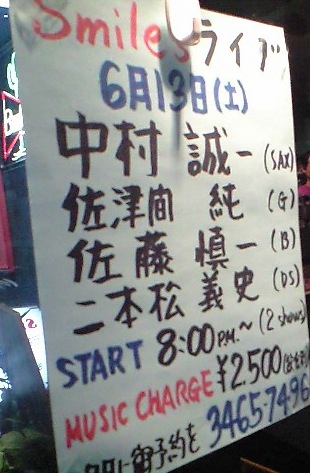 Smiles ライブ
6月13日(土)
中村 誠一 (SAX)
佐津間 純 (G)
佐藤 慎一 (B)
二本松 義史 (DS)
START 8:00 P.M.~ (2 shows)
MUSIC CHARGE ¥2.500
御予約を 3465-7496